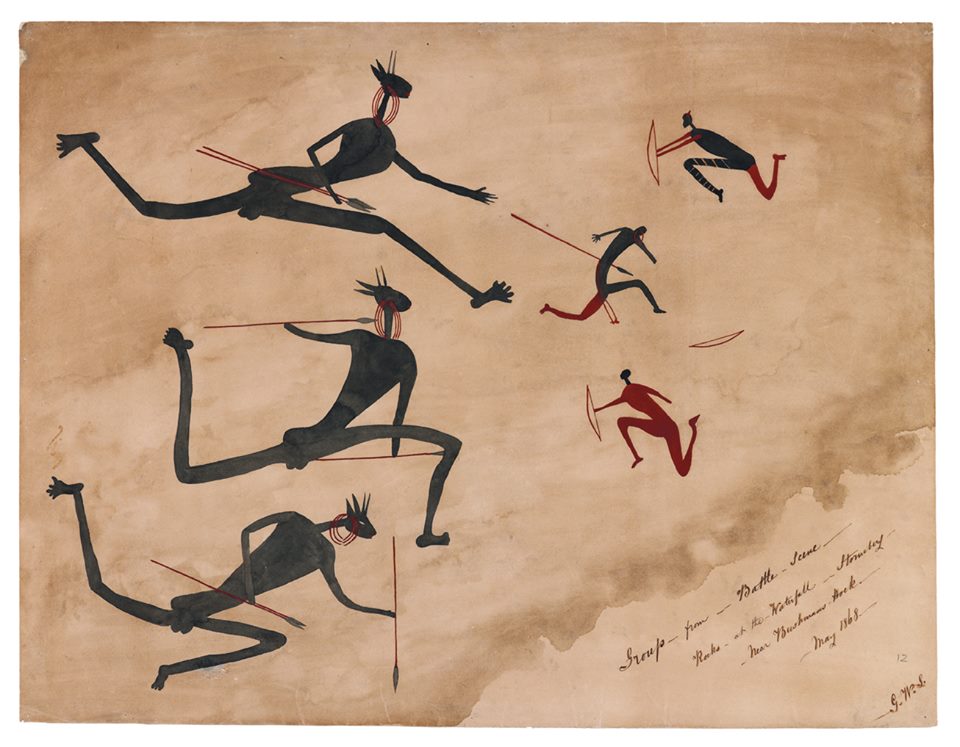 Group - from - Battle - Scene -
Rocks - at the - Waterfall - Stormberg -
- Near Bushmans Hoek -
- May 1868 -
12
G. W. S.